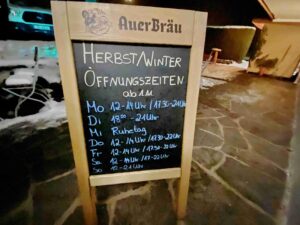 AuerBräu
HERBST/WINTER
ÖFFNUNGSZEITEN
ab 1.11.
Mo 12-14 Uhr / 17:30-21 Uhr
Di 18:00-21 Uhr
Mi Ruhetag
Do 12-14 Uhr / 17:30-22 Uhr
Fr 12-14 Uhr / 17:30-22 Uhr
Sa 12-14 Uhr / 17-22 Uhr
So 12-21 Uhr